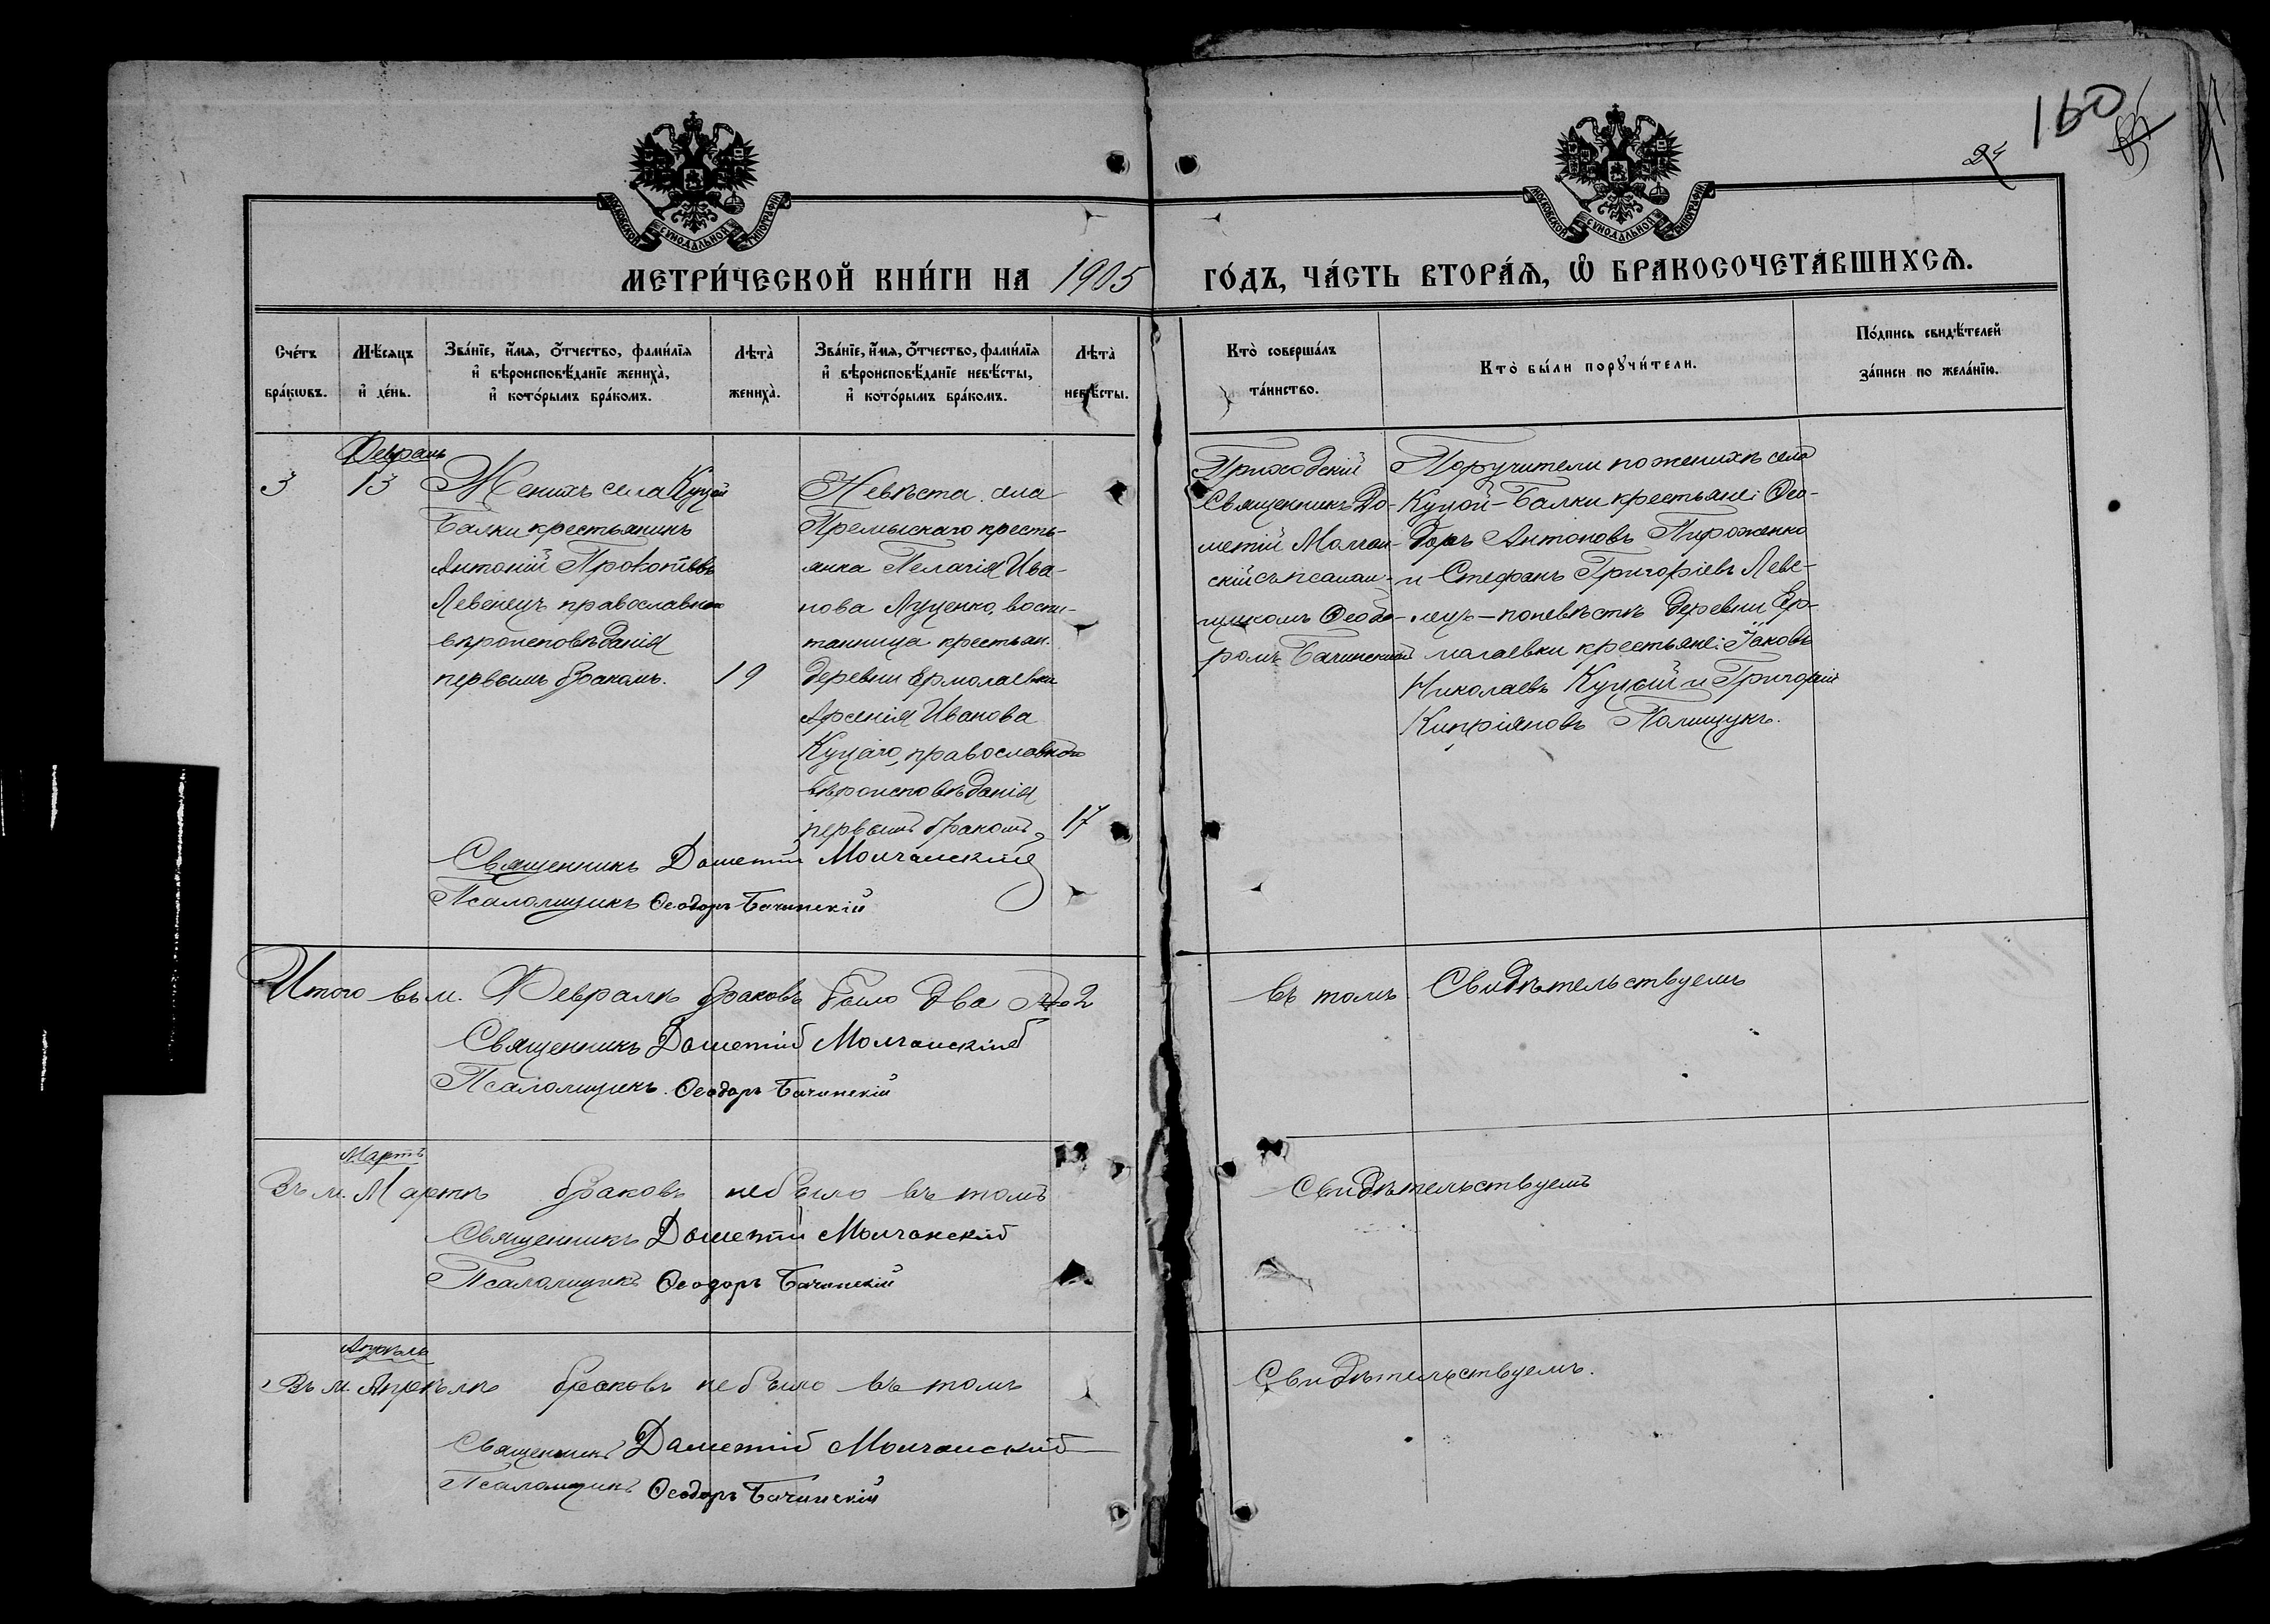 160
24
МОСКОВСКОЙ СѴНОДАЛЬНОЙ ТИПОГРАФІИ
МОСКОВСКОЙ СѴНОДАЛЬНОЙ ТИПОГРАФІИ
МЕТРИ́ЧЕСКОЙ КНИ́ГИ НА 1905 ГО́ДЪ, ЧА́СТЬ ВТОРА́Ѧ, Ѡ҆ БРАКОСОЧЕТА́ВШИХСѦ.
Сче́тъ
бра́кѡвъ.
Мѣ́сяцъ
и҆ де́нь.
Зва́нїе, и҆́мѧ, ѻ҆́тчество, фами́лїѧ
и҆ вѣроисповѣ́данїе жениха̀,
и҆ кото́рымъ бра́комъ.
Лѣта̀
жениха̀.
Зва́нїе, и҆́мѧ, ѻ҆́тчество, фами́лїѧ
и҆ вѣроисповѣ́данїе невѣ́сты,
и҆ кото́рымъ бра́комъ.
Лѣта̀
невѣ́сты.
Кто̀ соверша́лъ
та́инство.
Кто̀ бы́ли порꙋчи́тели.
По́дпись свидѣ́телей
за́писи по жела́нїю.
Февраль
3
13
Женихъ села Куцой
Балки крестьянинъ
Антоній Прокопіевъ
Левенецъ православнаго
вѣроисповѣданія
первымъ бракомъ.
19
Невѣста села
Премыскаго кресть-
янка Пелагія Ива-
нова Луценко, воспи-
танница крестьян.
деревни Ермолаевки
Арсенія Иванова
Куцаго, православнаго
вѣроисповѣданія
первымъ бракомъ
17
Приходскій
Священникъ До-
метій Молчан-
скій съ псалом-
щикомъ Ѳеодо-
ромъ Бачинскимъ
Поручители по женихѣ села
Куцой-Балки крестьяне: Ѳео-
доръ Антоновъ Пироженко
и Стефанъ Григоріевъ Леве-
нецъ – по невѣстѣ деревни Ер-
молаевки крестьяне: Іаковъ
Николаевъ Куцый и Григорій
Кипріяновъ Полищукъ.
Священникъ Дометій Молчанскій
Псаломщикъ Ѳеодоръ Бачинскій
Итого въ м. Февралѣ браковъ было два № 2
въ томъ Свидѣтельствуемъ
Священникъ Дометій Молчанскій
Псаломщикъ Ѳеодоръ Бачинскій
Мартъ
Въ м. Мартѣ браковъ не было въ томъ
Свидѣтельствуемъ
Священникъ Дометій Молчанскій
Псаломщикъ Ѳеодоръ Бачинскій
Апрѣль
Въ м. Апрѣлѣ браковъ не было въ томъ
Свидѣтельствуемъ.
Священникъ Дометій Молчанскій
Псаломщикъ Ѳеодоръ Бачинскій